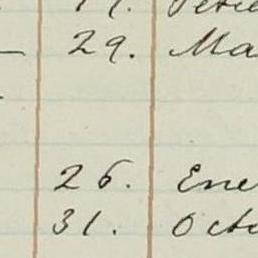 29. Ma
26. Ene
31. Octu